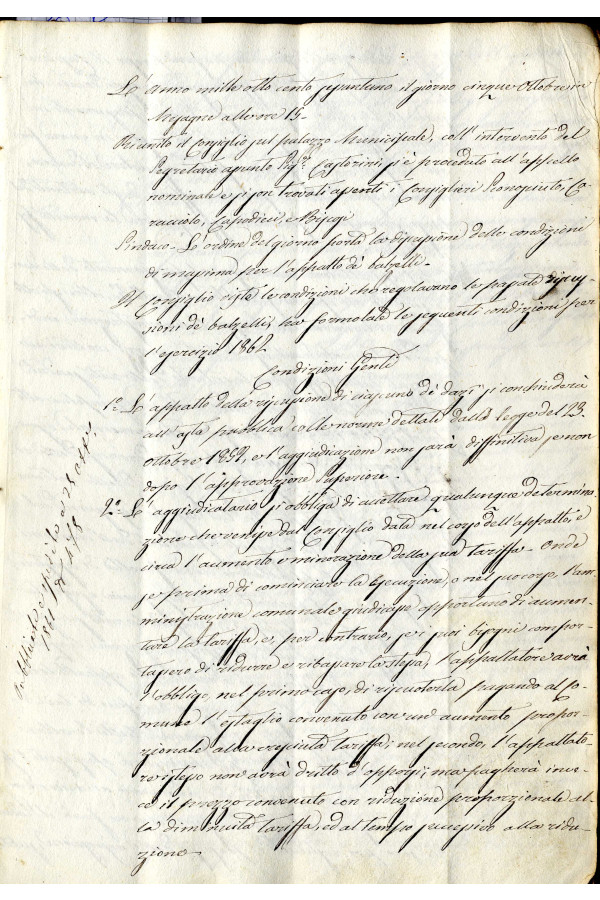 L'anno mille otto cento sessantuno il giorno cinque Ottobre in
Mesagne alle ore 15.
Riunito il Consiglio sul palazzo Municipale, coll'intervento del
Segretario assunto Sigr. Castorini, si è proceduto all'appello
nominale e si son trovati assenti i Consiglieri Profilo, Ca-
racciolo, Capodieci, e
Sindaco - L'ordine del giorno porta la discussione delle condizioni
di massima per l'appalto de' balzelli -
Il Consiglio viste le condizioni che regolavano le passate riscus-
sioni de' balzelli, ha formolate le seguenti condizioni per
l'esercizio 1862
Condizioni Genli
1.º L'appalto della riscussione di ciascuno de' dazî si conchiuderà
all'asta pubblica colle norme dettate dalla legge del 23.
Ottobre 1859, e l'aggiudicazione non sarà diffinitiva, se non
dopo l'approvazione Superiore.
2.º L'aggiudicatario si obbliga di accettare qualunque determina-
zione che venisse dal Consiglio data nel corso dell'appalto,
circa l'aumento o minorazione della sua tariffa. Onde
se prima di cominciare la esecuzione, o nel suo corso, l'am-
ministrazione comunale giudicasse opportuno di aumen-
tare la tariffa, e, per contrario, se i suoi bisogni compor-
tassero di ridurre e ribassare la stessa, l'appaltatore avrà
l'obbligo, nel primo caso, di riscuoterla pagando al Co-
mune l'estaglio convenuto con un aumento propor-
zionale alla cresciuta tariffa; nel secondo, l'appaltato-
re istesso non avrà dritto d'opporsi, ma pagherà inve-
ce il prezzo convenuto con riduzione proporzionale al-
la diminuita tariffa, ed al tempo successivo alla ridu-
zione -
spedito a 25 8bre
1861